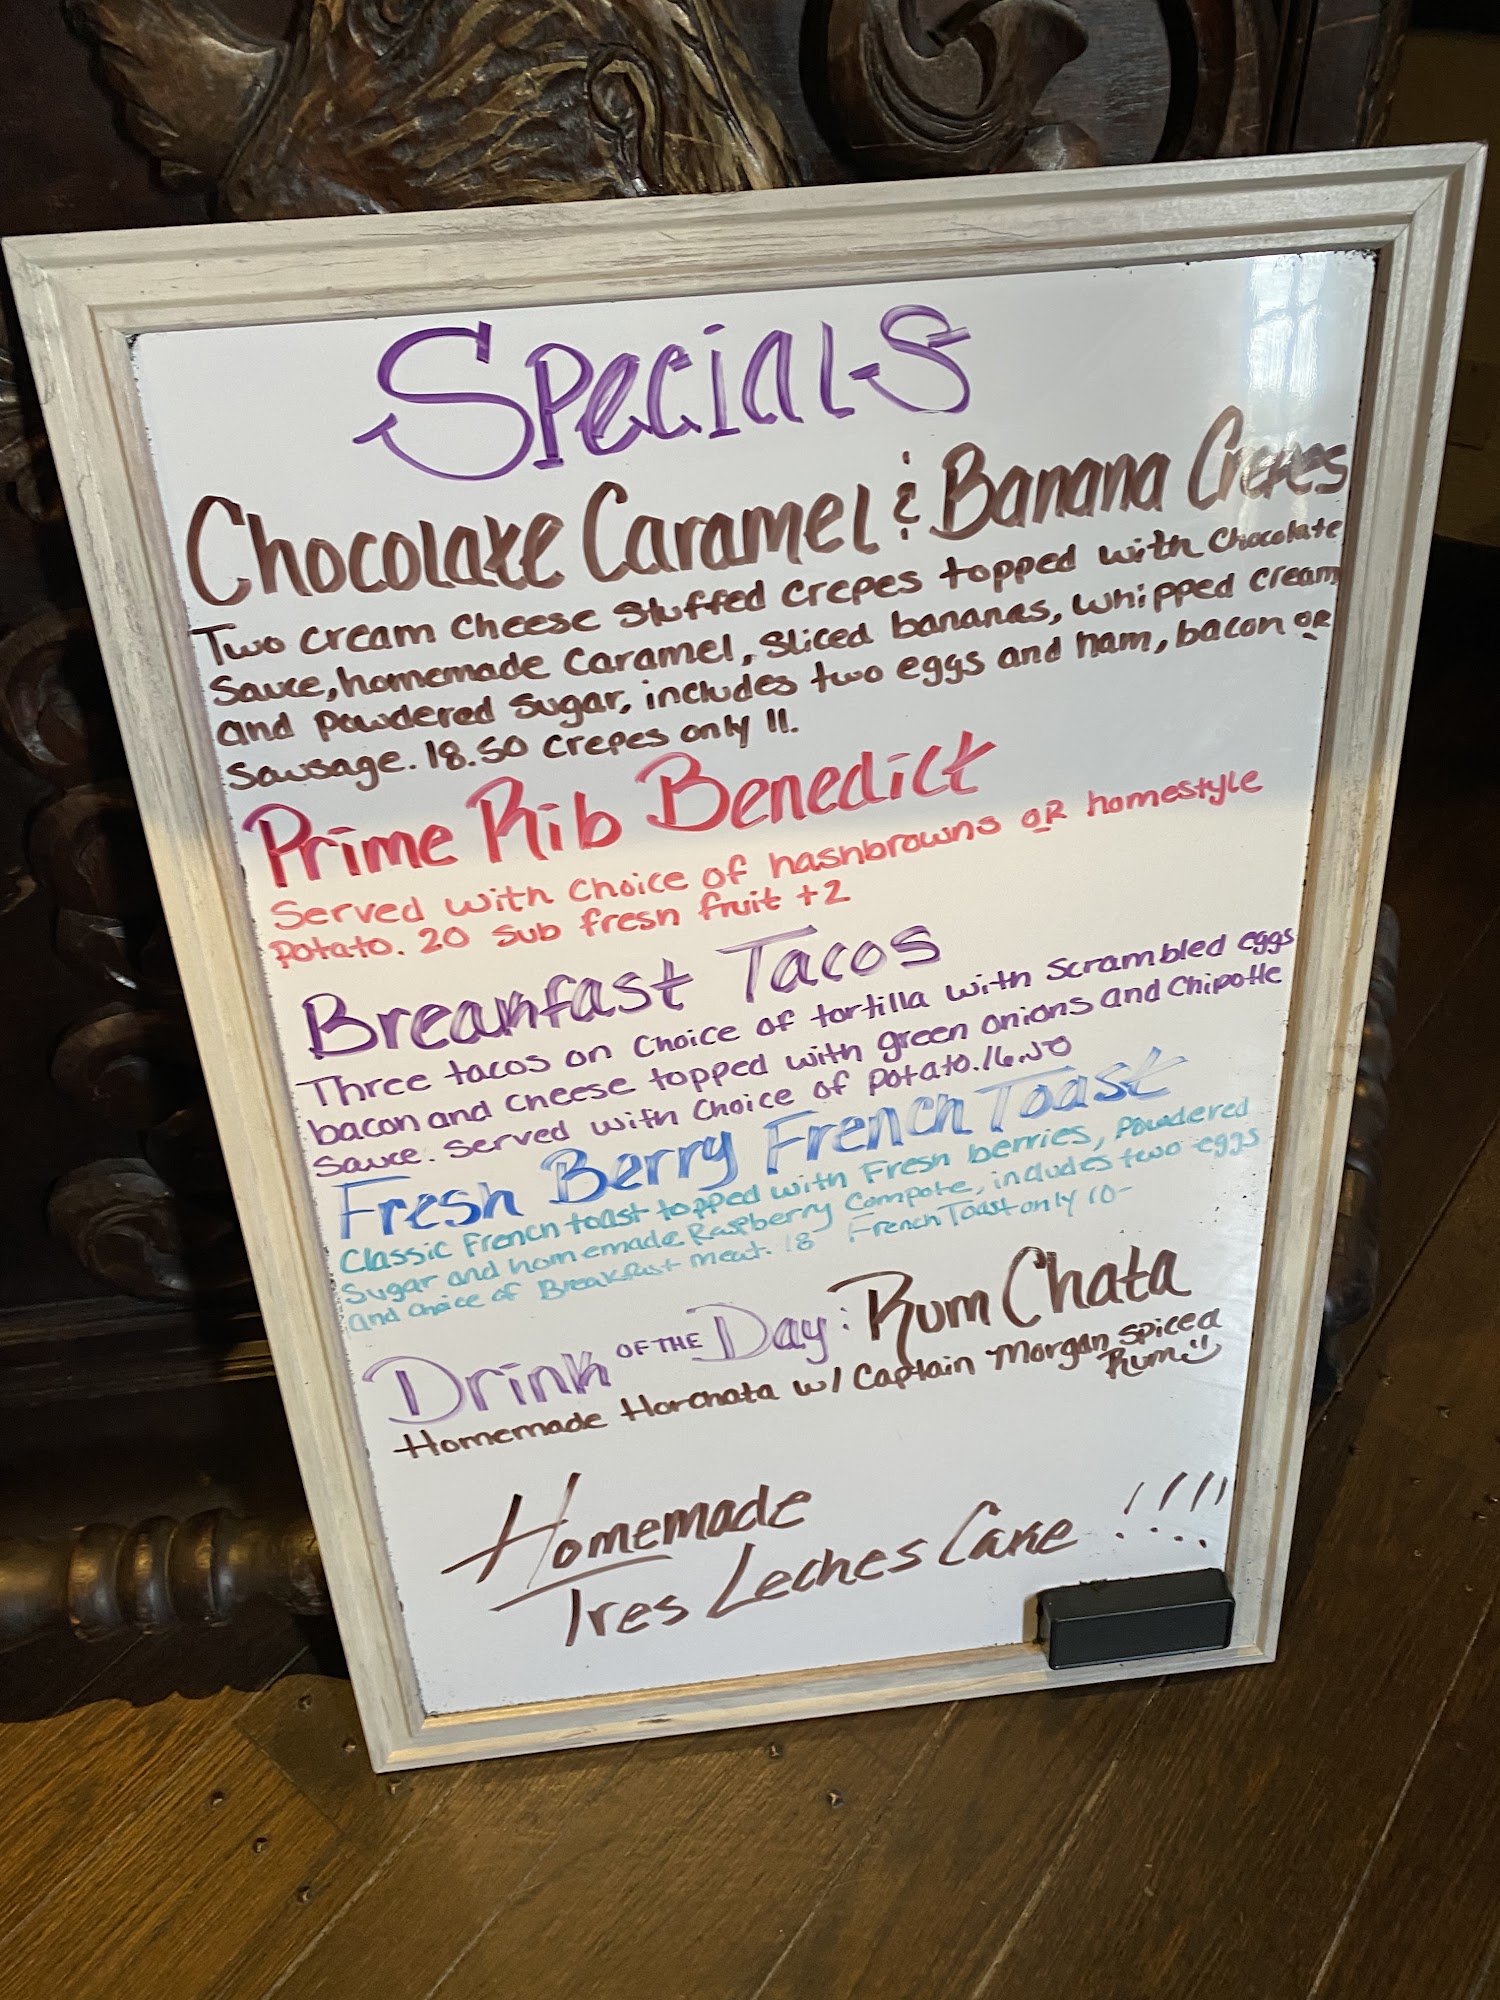 Specials
Chocolate Caramel & Banana Crepes
Two cream cheese stuffed crepes topped with chocolate
sauce, homemade caramel, sliced bananas, whipped cream
and powdered sugar, includes two eggs and ham, bacon OR
sausage. 18.50 crepes only 11.
Prime Rib Benedict
Served with choice of hashbrowns OR homestyle
potato. 20 sub fresh fruit +2
Breakfast Tacos
Three tacos on choice of tortilla with scrambled eggs
bacon and cheese topped with green onions and chipotle
sauce. Served with choice of potato. 16.50
Fresh Berry French Toast
Classic French toast topped with Fresh berries, powdered
sugar and homemade Raspberry Compote, includes two eggs
and choice of Breakfast meat. 18- French Toast only 10-
Drink OF THE Day: Rum Chata
Homemade Horchata w/ Captain Morgan spiced
Rum
Homemade
Tres Leches Cake !!!!